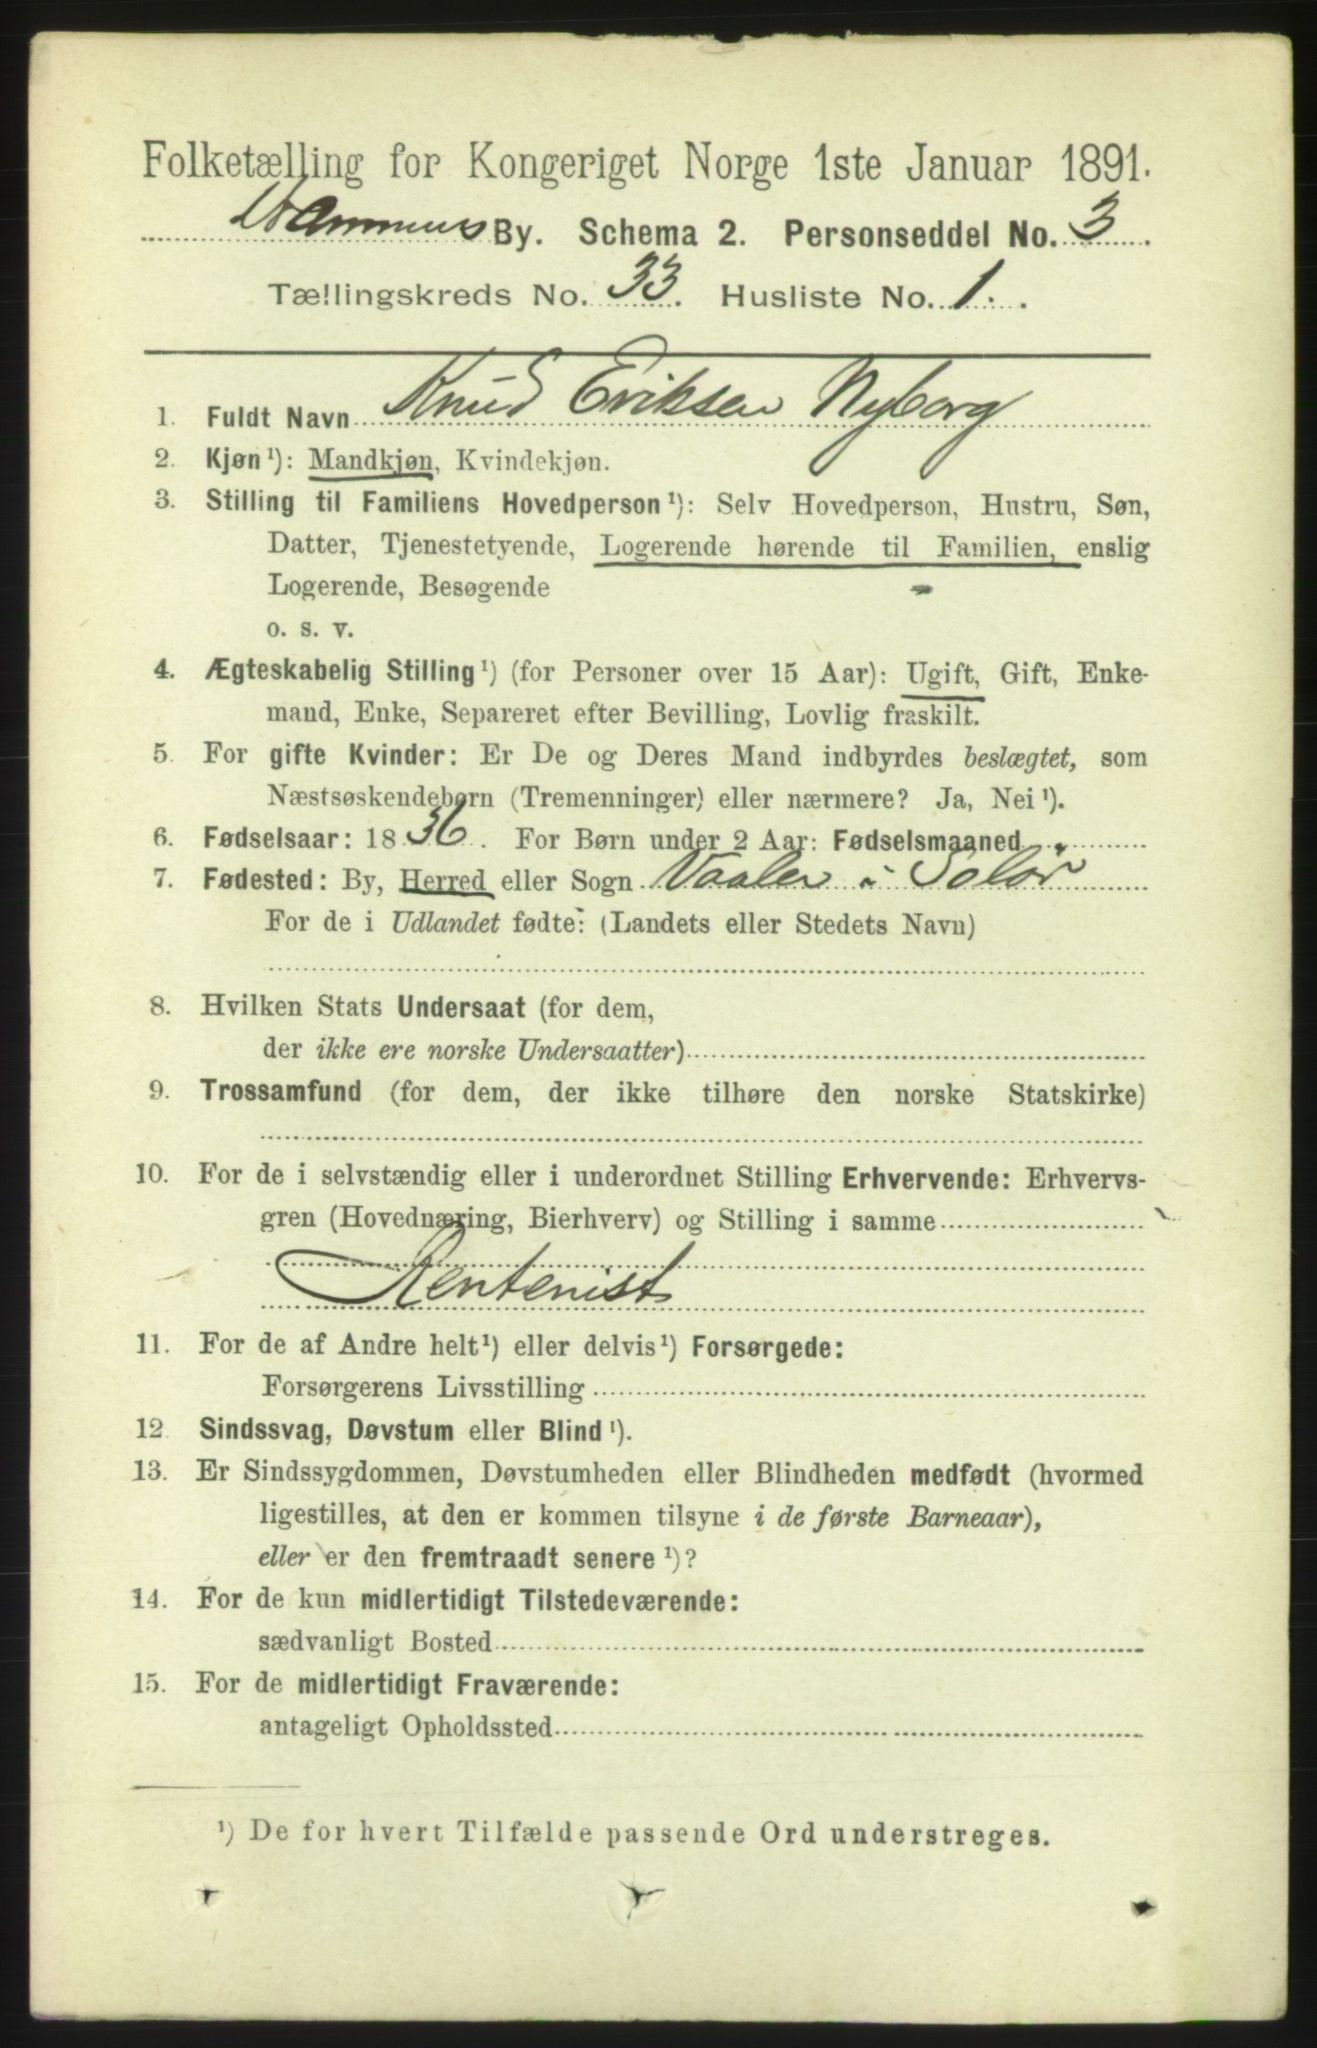 Folketælling for Kongeriget Norge 1ste Januar 1891.
Drammens By. Schema 2. Personseddel No. 3.
Tællingskreds No. 33. Husliste No. 1.
1. Fuldt Navn Knud Eriksen Nyborg
2. Kjøn¹): Mandkjøn, Kvindekjøn.
3. Stilling til Familiens Hovedperson¹): Selv Hovedperson, Hustru, Søn,
Datter, Tjenestetyende, Logerende hørende til Familien, enslig
Logerende, Besøgende
o. s. v.
4. Ægteskabelig Stilling¹) (for Personer over 15 Aar): Ugift, Gift, Enke-
mand, Enke, Separeret efter Bevilling, Lovlig fraskilt.
5. For gifte Kvinder: Er De og Deres Mand indbyrdes beslægtet, som
Næstsøskendebørn (Tremenninger) eller nærmere? Ja, Nei¹).
6. Fødselsaar: 1836. For Børn under 2 Aar: Fødselsmaaned
7. Fødested: By, Herred eller Sogn Vaaler i Solør
For de i Udlandet fødte: (Landets eller Stedets Navn)
8. Hvilken Stats Undersaat (for dem,
der ikke ere norske Undersaatter)
9. Trossamfund (for dem, der ikke tilhøre den norske Statskirke)
10. For de i selvstændig eller i underordnet Stilling Erhvervende: Erhvervs-
gren (Hovednæring, Bierhverv) og Stilling i samme
Rentenist
11. For de af Andre helt¹) eller delvis¹) Forsørgede:
Forsørgerens Livsstilling
12 Sindssvag, Døvstum eller Blind¹).
13. Er Sindssygdommen, Døvstumheden eller Blindheden medfødt (hvormed
ligestilles, at den er kommen tilsyne i de første Barneaar),
eller er den fremtraadt senere¹)?
14. For de kun midlertidigt Tilstedeværende:
sædvanligt Bosted
15. For de midlertidigt Fraværende:
antageligt Opholdssted
¹) De for hvert Tilfælde passende Ord understreges.